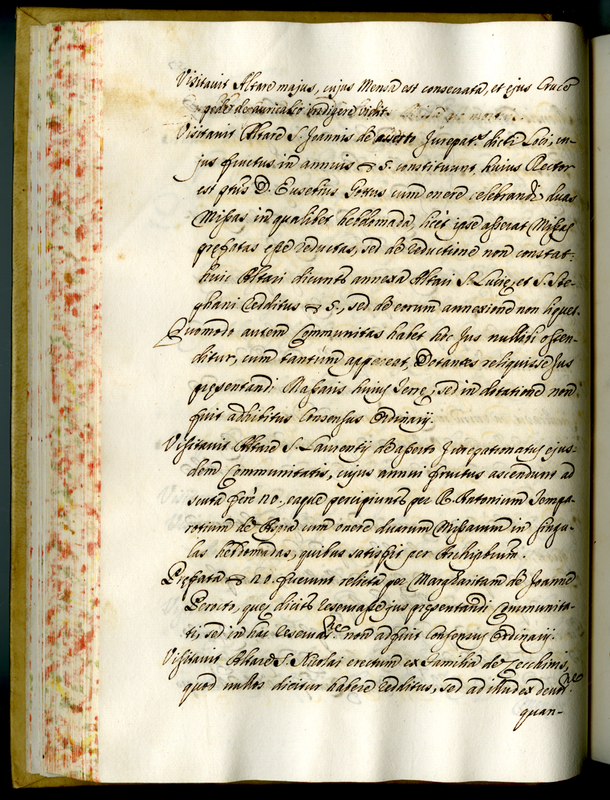 Visitavit Altare majus, cujus Mensa est consecrata, et ejus Cruces
de auricalco indigere vidit.
Visitavit Altare S. Joannis de asserto Jurepat.s dicti Loci, cu-
jus fructus in annuis 5. constituunt, huius Rector
est D. Eusebius Gottus cum onere celebrandi duas
Missas in qualibet hebdomada, licet ipse asserat Missas
prefatas esse reductas, sed de reductione non constat.
huic Altari dicunt.r annexa Altari S. Lucie, et S. Ste-
phani Redditus 5., sed de eorum annexione non liquet.
Quomodo autem Communitas habet hic Jus nullibi osten-
ditur, cum tantum appareat, Dotantes reliquisse Jus
presentandi Massariis huius Terre, sed in dotatione non
fuit adhibitus Consensus Ordinarij.
Visitavit Altare S. Laurentij de asserto Jurepatronatus ejus-
dem Communitatis, cujus annui fructus ascendunt ad
scuta ferè 20. eaque percipiunt.r per R. Antonium Tempa-
rotium de cum onere duarum Missarum in singu-
las hebdomadas, quibus satisfit per Archiptrum.
Prefata 20. fuerunt relicta per Margharitam de Joanne
Pereto, que dicit.r reservasse jus presentandi Communita-
ti, sed in hac reservat.ne non adfuit Consensus Ordinarij.
Visitavit Altare S. Nicolai erectum ex Familia de Zecchinis,
quod nullos dicitur habere redditus, sed ad illud ex devot.ne
quan-